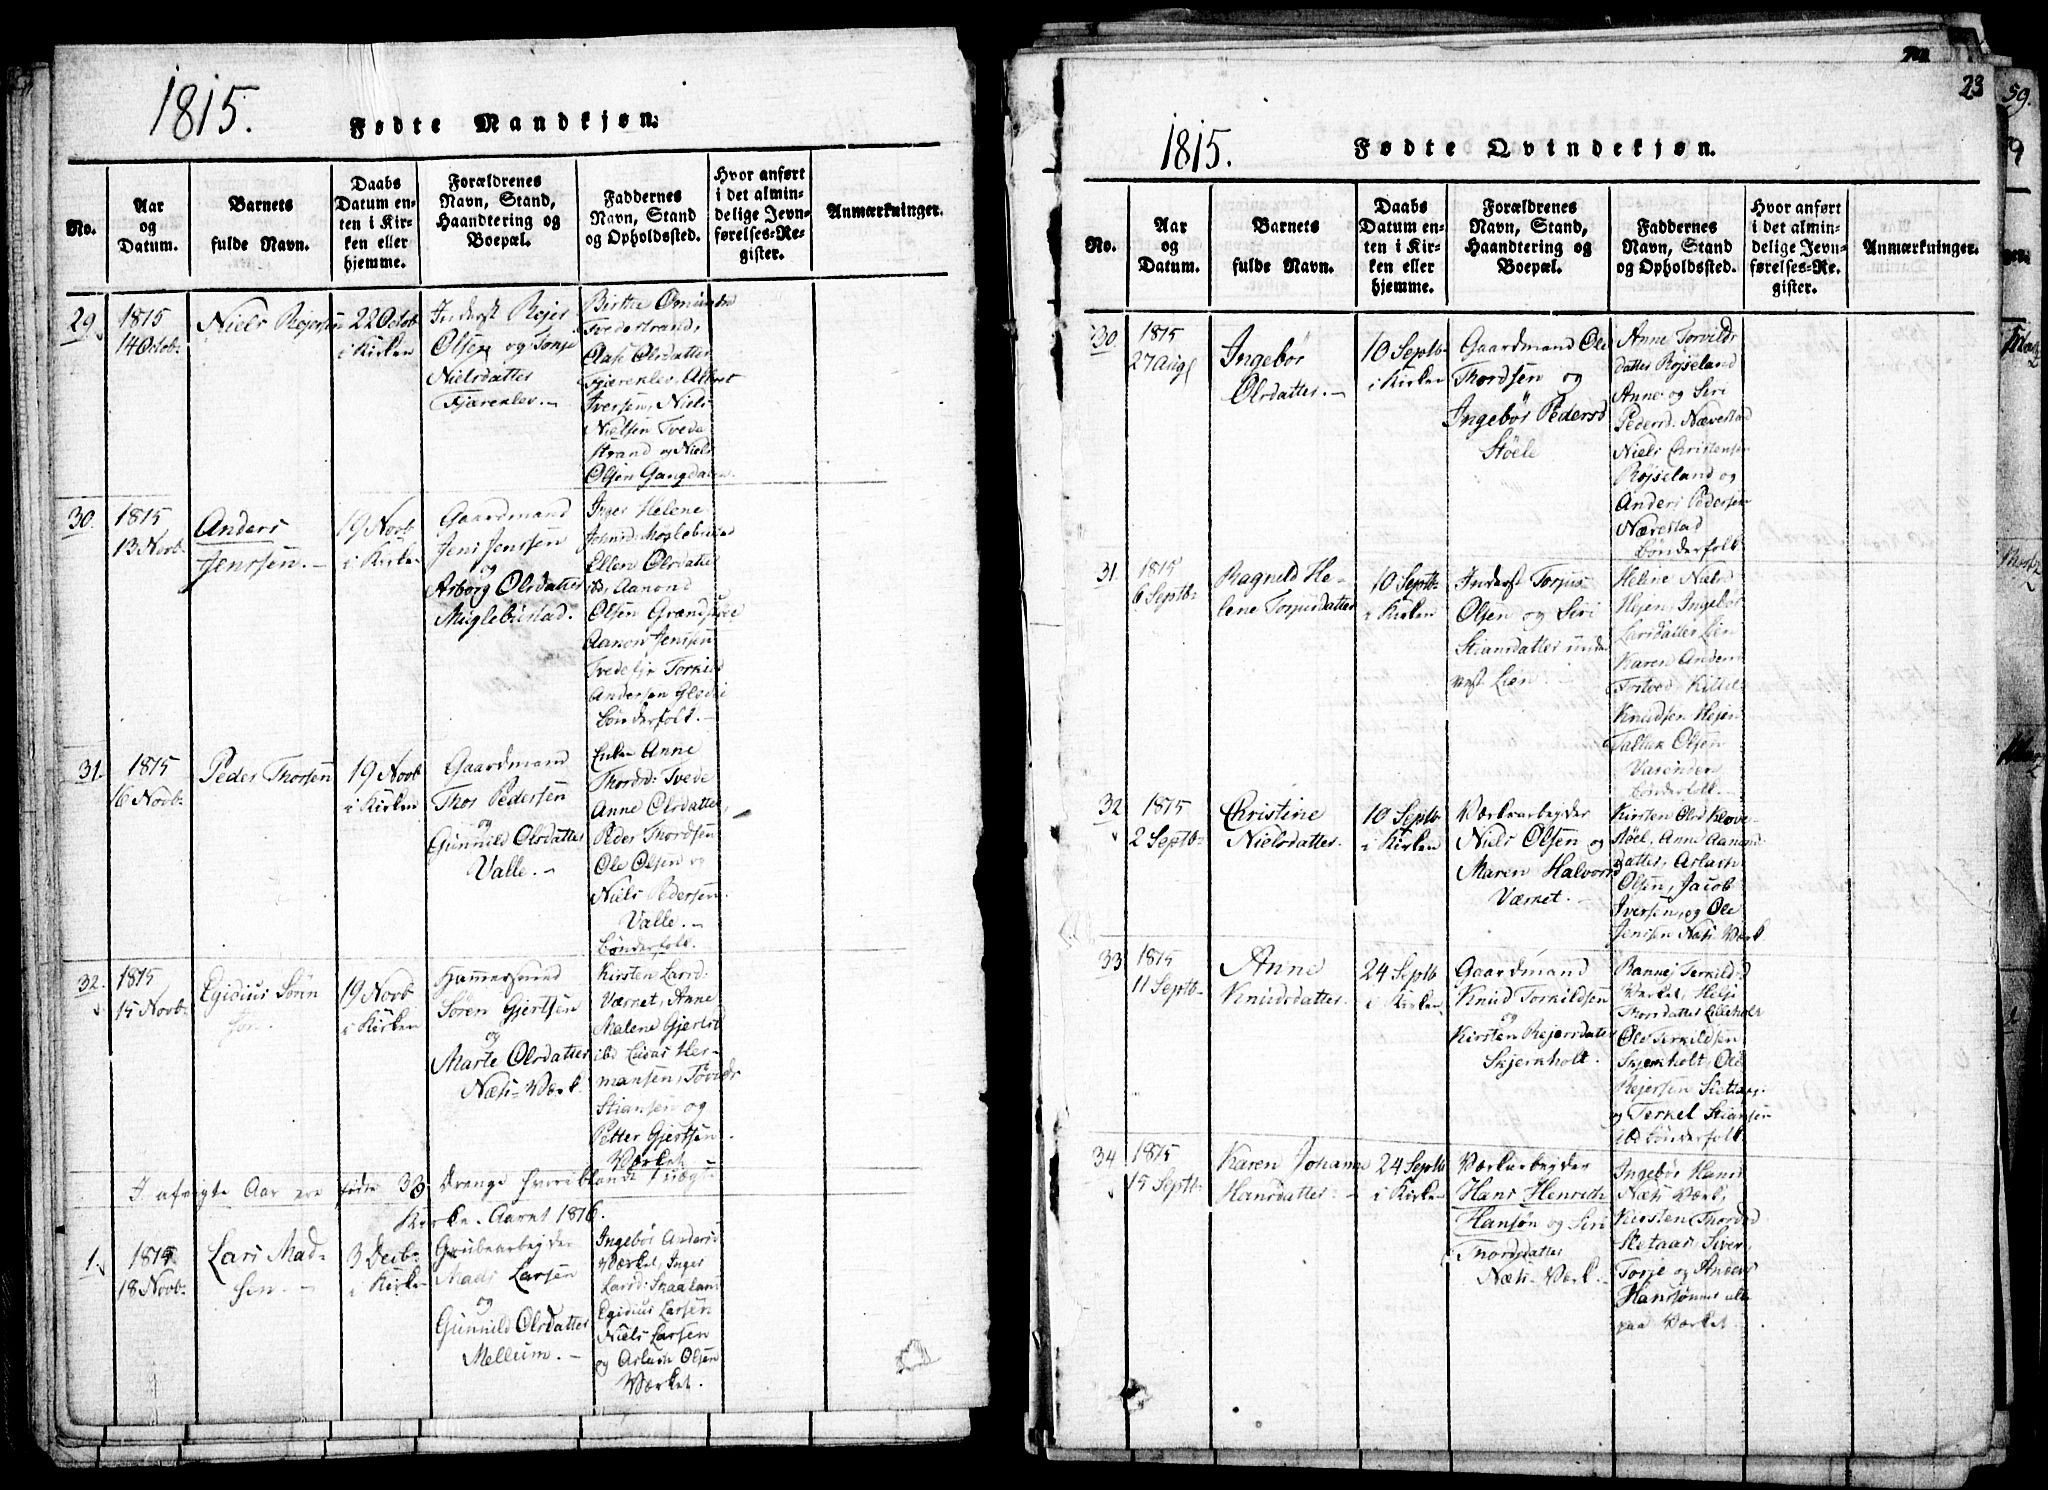 1815.
Fødte Mandkjøn.
No.
Aar
og
Datum.
Barnets
fulde Navn.
Daabs
Datum en-
ten i Kir-
ken eller
hjemme.
Forældrenes
Navn, Stand,
Haandtering og
Boepæl.
Faddernes
Navn, Stand
og Opholdssted.
Hvor anført
i det almin-
delige Jevn-
førelses-Re-
gister.
Anmærkninger.
29
1815
14 Octob:
Niels Rejersen
22 Octob
i Kirken
Inderst Rejer
Olsen og Tonje
Nielsdatter
Fjærenlev.-
Birthe
Tvedestrand,
Olsdatter
Iversen, Niels
Nielsen Tvede
strand og Niels
Olsen Gangdalen.
30.
1815
13 Novb:
Anders
Jenssen.-
19 Novb
i Kirken
Gaardmand
Jens Jenssen
og
Asborg Olsdatter
Møglebustad.
Inger Helene
Ellen Olsdatter
ibd, Aanond
Olsen
Jenssen
Andersen
Bønderfolk.-
31.
1815
16 Novb:
Peder Thorsen
19 Novb
i Kirken
Gaardmand
Thor Pedersen
og
Gunnild Olsdatter
Valle.-
Enke Anne
Thordsd: Tvede
Anne Olsdatter,
Peder Thordsen
Ole Olsen og
Niels Pedersen
Valle.-
Bønderfolk.
32.
1815
15 Novb:
Egidius Sørn
søn.
19 Novb
i Kirken
Hammersmed
Søren Gjertsen
og
Marte Olsdatter
Næs-Værk
Kirsten Larsd:
Værket, Anne
Malene Gjertsd
ibd Lucas Her-
mansen,
Stiansen og
Petter Gjertsen
Værket-
I afvigte Aar ere fødte 38 Drenge hvoriblandt 1 uægt-
Kirke-Aaret 1816.
1.
1815
18 Novb:
Lars Mad-
sen.-
3 Decb:
i Kirken
Grubearbejder
Mads Larsen
og
Gunnild Olsdatter
Mellum.-
Ingebør Andersd
Værket, Inger
Larsd:
Egidius Larsen
Niels Larsen
og Aslach Olsen
Værket.
23
59.
1815.
Fødte Qvindekjøn.
No.
Aar
og
Datum.
Barnets
fulde Navn.
Daabs
Datum en-
ten i Kir-
ken eller
hjemme.
Forældrenes
Navn, Stand,
Haandtering og
Boepæl.
Faddernes
Navn, Stand
og Opholdssted.
Hvor anført
i det almin-
delige Jevn-
førelses-Re-
gister.
Anmærkninger.
30
1815
27 Aug
Ingebør
Olsdatter.-
10 Septb:
i Kirken
Gaardmand Ole
Thordsen og
Ingebør Pedersd
Støele
Anne Torvilds
datter Røjseland
Anne og Siri
Pedersd. Nævestad
Niels Christensen
Røjseland og
Anders Pedersen
Nævestad
Bønderfolk
31.
1815
6 Septb:
Ragnild He-
lene Torjusdatter
10 Septb:
i Kirken
Inderst Torjus
Olsen og Siri
Stiansdatter
Lien.-
Helene Nielsd
Hejen, Ingebør
Larsdatter Lien
Karen Andersd
Kittel
Knudsen Hejen
Olsen
Bønderfolk.-
32
1815
2 Septb:
Christine
Nielsdatter.
10 Septb:
i Kirken
Værksarbejder
Niels Olsen og
Maren Halvorsd
Værket.-
Kirsten Olsd Klove-
støel, Anne Aanond
datter, Aslach
Olsen, Jacob
Iversen, og Ole
Jensen Næs Værk
33
1815
11 Septb:
Anne
Knudsdatter.
24 Septb
i Kirken
Gaardmand
Knud Torkildsen
og
Kirsten Rejersdatter
Skjerkholt.
Rannej Terkildsd
Værket, Helje
Thorsdatter Lilleholt
Ole Terkildsen
Skjerkholt, Ole
Rejersen Sletaas
og Terkel Stiansen
ibd Bønderfolk
34
1815
15 Septb:
Karen Johanne
Hansdatter.-
24 Septb
i Kirken
Værksarbejder
Hans Henrich
Hansøn og Siri
Thorsdatter
Næs-Værk.-
Ingebør Hansd
Næs Værk,
Kirsten Thorsd
Sletaas, Siver,
Torje og Anders
Hanssønner alle
paa Værket.